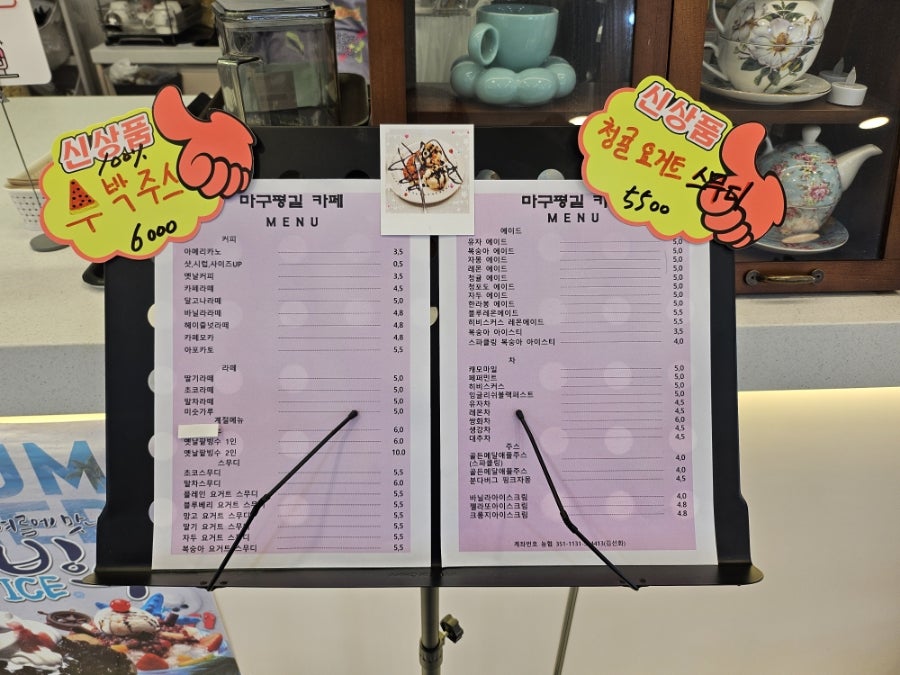 신상품
100%
수박주스
6000
신상품
청귤 요거트 스무디
5500
마구평길 카페
MENU
커피
아메리카노 3,5
샷,시럽,사이즈UP 0,5
옛날커피 3,5
카페라떼 4,5
달고나라떼 5,0
바닐라라떼 4,8
헤이즐넛라떼 4,8
카페모카 4,8
아포카토 5,5
라떼
딸기라떼 5,0
초코라떼 5,0
말차라떼 5,0
미숫가루 5,0
계절메뉴
6,0
옛날팥빙수 1인 6.0
옛날팥빙수 2인 10.0
스무디
초코스무디 5,5
말차스무디 6.0
플레인 요거트 스무디 5,5
블루베리 요거트 스무디 5,5
망고 요거트 스무디 5,5
딸기 요거트 스무디 5,5
자두 요거트 스무디 5,5
복숭아 요거트 스무디 5,5
마구평길
MENU
에이드
유자 에이드 5,0
복숭아 에이드 5,0
자몽 에이드 5,0
레몬 에이드 5,0
청귤 에이드 5,0
청포도 에이드 5,0
자두 에이드 5,0
한라봉 에이드 5,0
블루레몬에이드 5,5
히비스커스 레몬에이드 5,5
복숭아 아이스티 3,5
스파클링 복숭아 아이스티 4,0
차
캐모마일 5,0
페퍼민트 5,0
히비스커스 5,0
잉글리쉬블랙퍼스트 5,0
유자차 4,5
레몬차 4,5
쌍화차 6,0
생강차 4,5
대추차 4,5
주스
골든메달애플주스 4,0
(스파클링)
골든메달애플주스 4,0
분다버그 핑크자몽 4,5
바닐라아이스크림 4,0
젤라또아이스크림 4.8
크룽지아이스크림 4.8
계좌번호 농협 351-1131
ICE